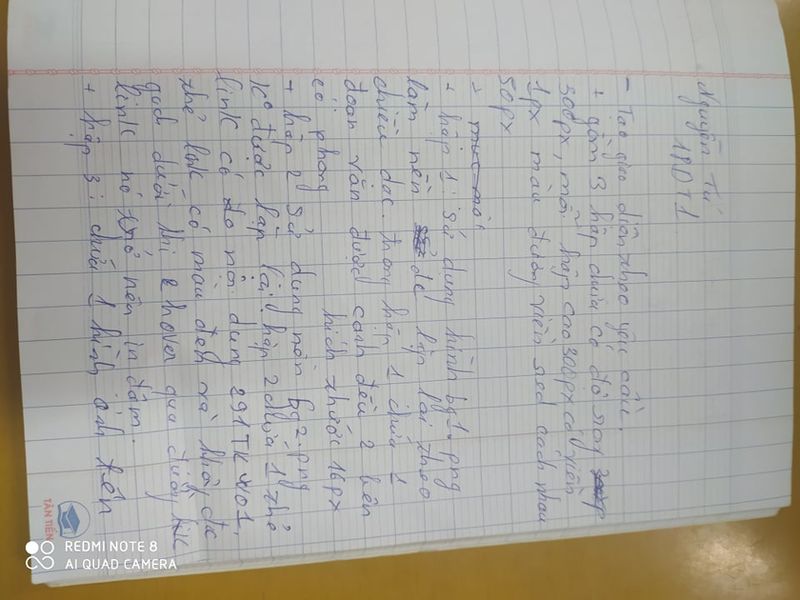 Nguyễn Tú
18DT1
- Tạo giao diện theo yêu cầu.
+ gồm 3 hộp chứa có độ rộng
300px, mỗi hộp cao 300px có viền
1px màu đường viền red cách nhau
50px
+ hộp 1: sử dụng hình bg1.png
làm nền để lặp lại theo
chiều dọc. trong hộp 1 chứa 1
đoạn văn được canh đều 2 bên
có phông kích thước 16px
+ hộp 2 sử dụng nền bg2.png
k° được lặp lại hộp 2 chứa 1 thẻ
link có nội dung
thẻ link có màu đen và không có
gạch dưới khi hover qua đường link
link nó trở nên in đậm.
+ hộp 3: chứa 1 hình ảnh
TÂN TIẾN
REDMI NOTE 8
AI QUAD CAMERA